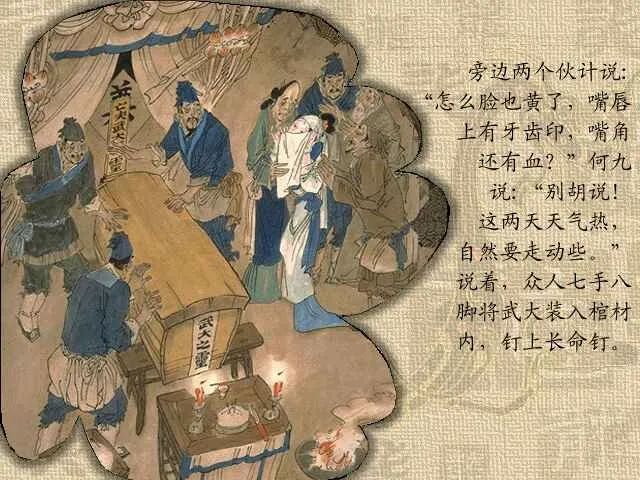 旁边两个伙计说：
“怎么脸也黄了，嘴唇
上有牙齿印，嘴角
还有血？”何九
说：“别胡说！
这两天天气热，
自然要走动些。”
说着，众人七手八
脚将武大装入棺材
内，钉上长命钉。
武大之靈